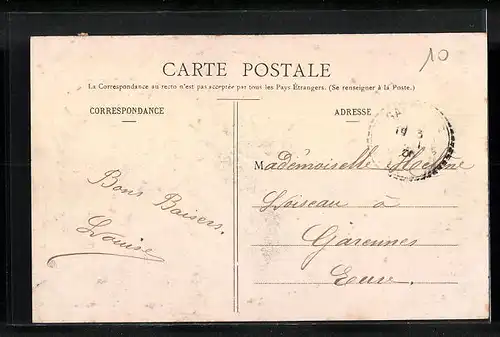 10
CARTE POSTALE
La Correspondance au recto n'est pas acceptée par tous les Pays Étrangers. (Se renseigner à la Poste.)
CORRESPONDANCE
ADRESSE
Bons Baisers.
Louise
Mademoiselle
Loiseau à
Garennes
Eure.